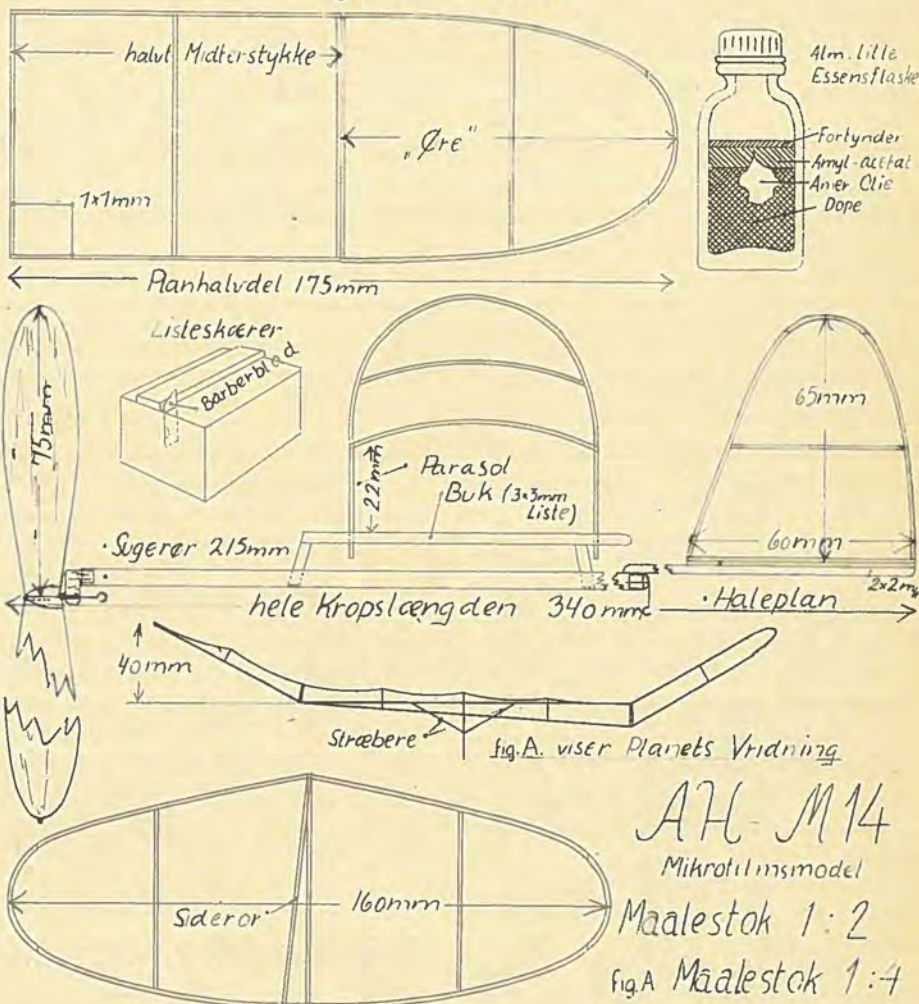 halvt Midterstykke
"Øre"
1x1mm
Planhalvdel 175mm
Alm. lille
Essensflaske
Fortynder
Amyl-acetat
Amer Clie
Dope
Listeskærer
Barberblad
75mm
22mm
Parasol
Buk (3x3mm
Liste)
65mm
60mm
Sugerør 215mm
2x2mm
hele Kropslængden 340mm
Haleplan
40mm
Stræbere
fig.A. viser Planets Vridning
Sideror
160mm
AH-M14
Mikrofilmsmodel
Maalestok 1:2
fig.A Maalestok 1:4